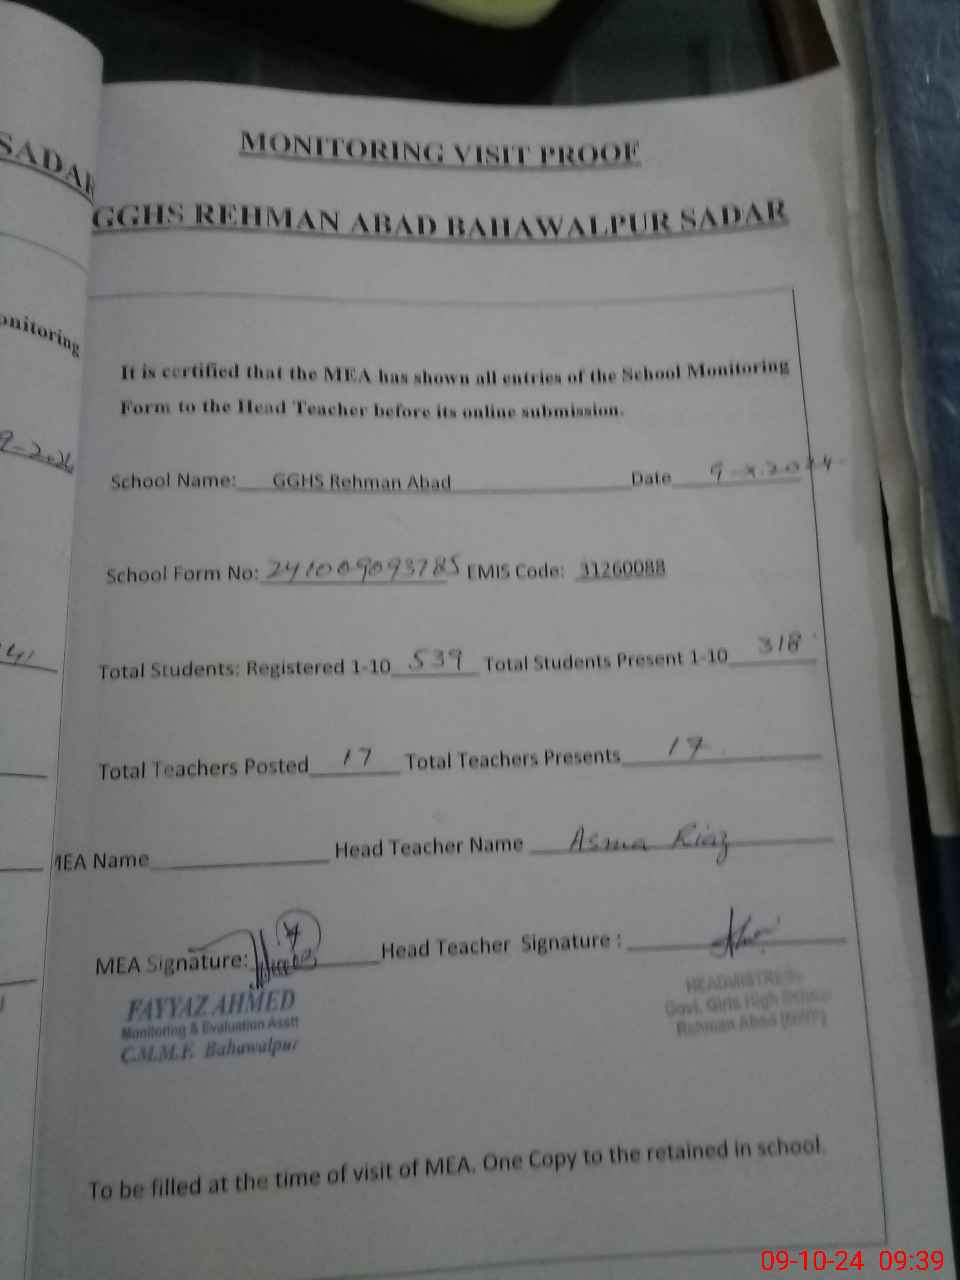 SADAR
MONITORING VISIT PROOF
GGHS REHMAN ABAD BAHAWALPUR SADAR
onitoring
It is certified that the MEA has shown all entries of the School Monitoring
Form to the Head Teacher before its online submission.
School Name: GGHS Rehman Abad Date 9-x-2024
School Form No: 241009093785 EMIS Code: 31260088
Total Students: Registered 1-10 539 Total Students Present 1-10 318
Total Teachers Posted 17 Total Teachers Presents 17
MEA Name Head Teacher Name Asma Riaz
MEA Signature: Head Teacher Signature :
FAYYAZ AHMED
Monitoring & Evaluation Asstt
C.M.M.F. Bahawalpur
HEADMISTRESS
Govt. Girls High School
Rehman Abad
To be filled at the time of visit of MEA. One Copy to the retained in school.
09-10-24 09:39